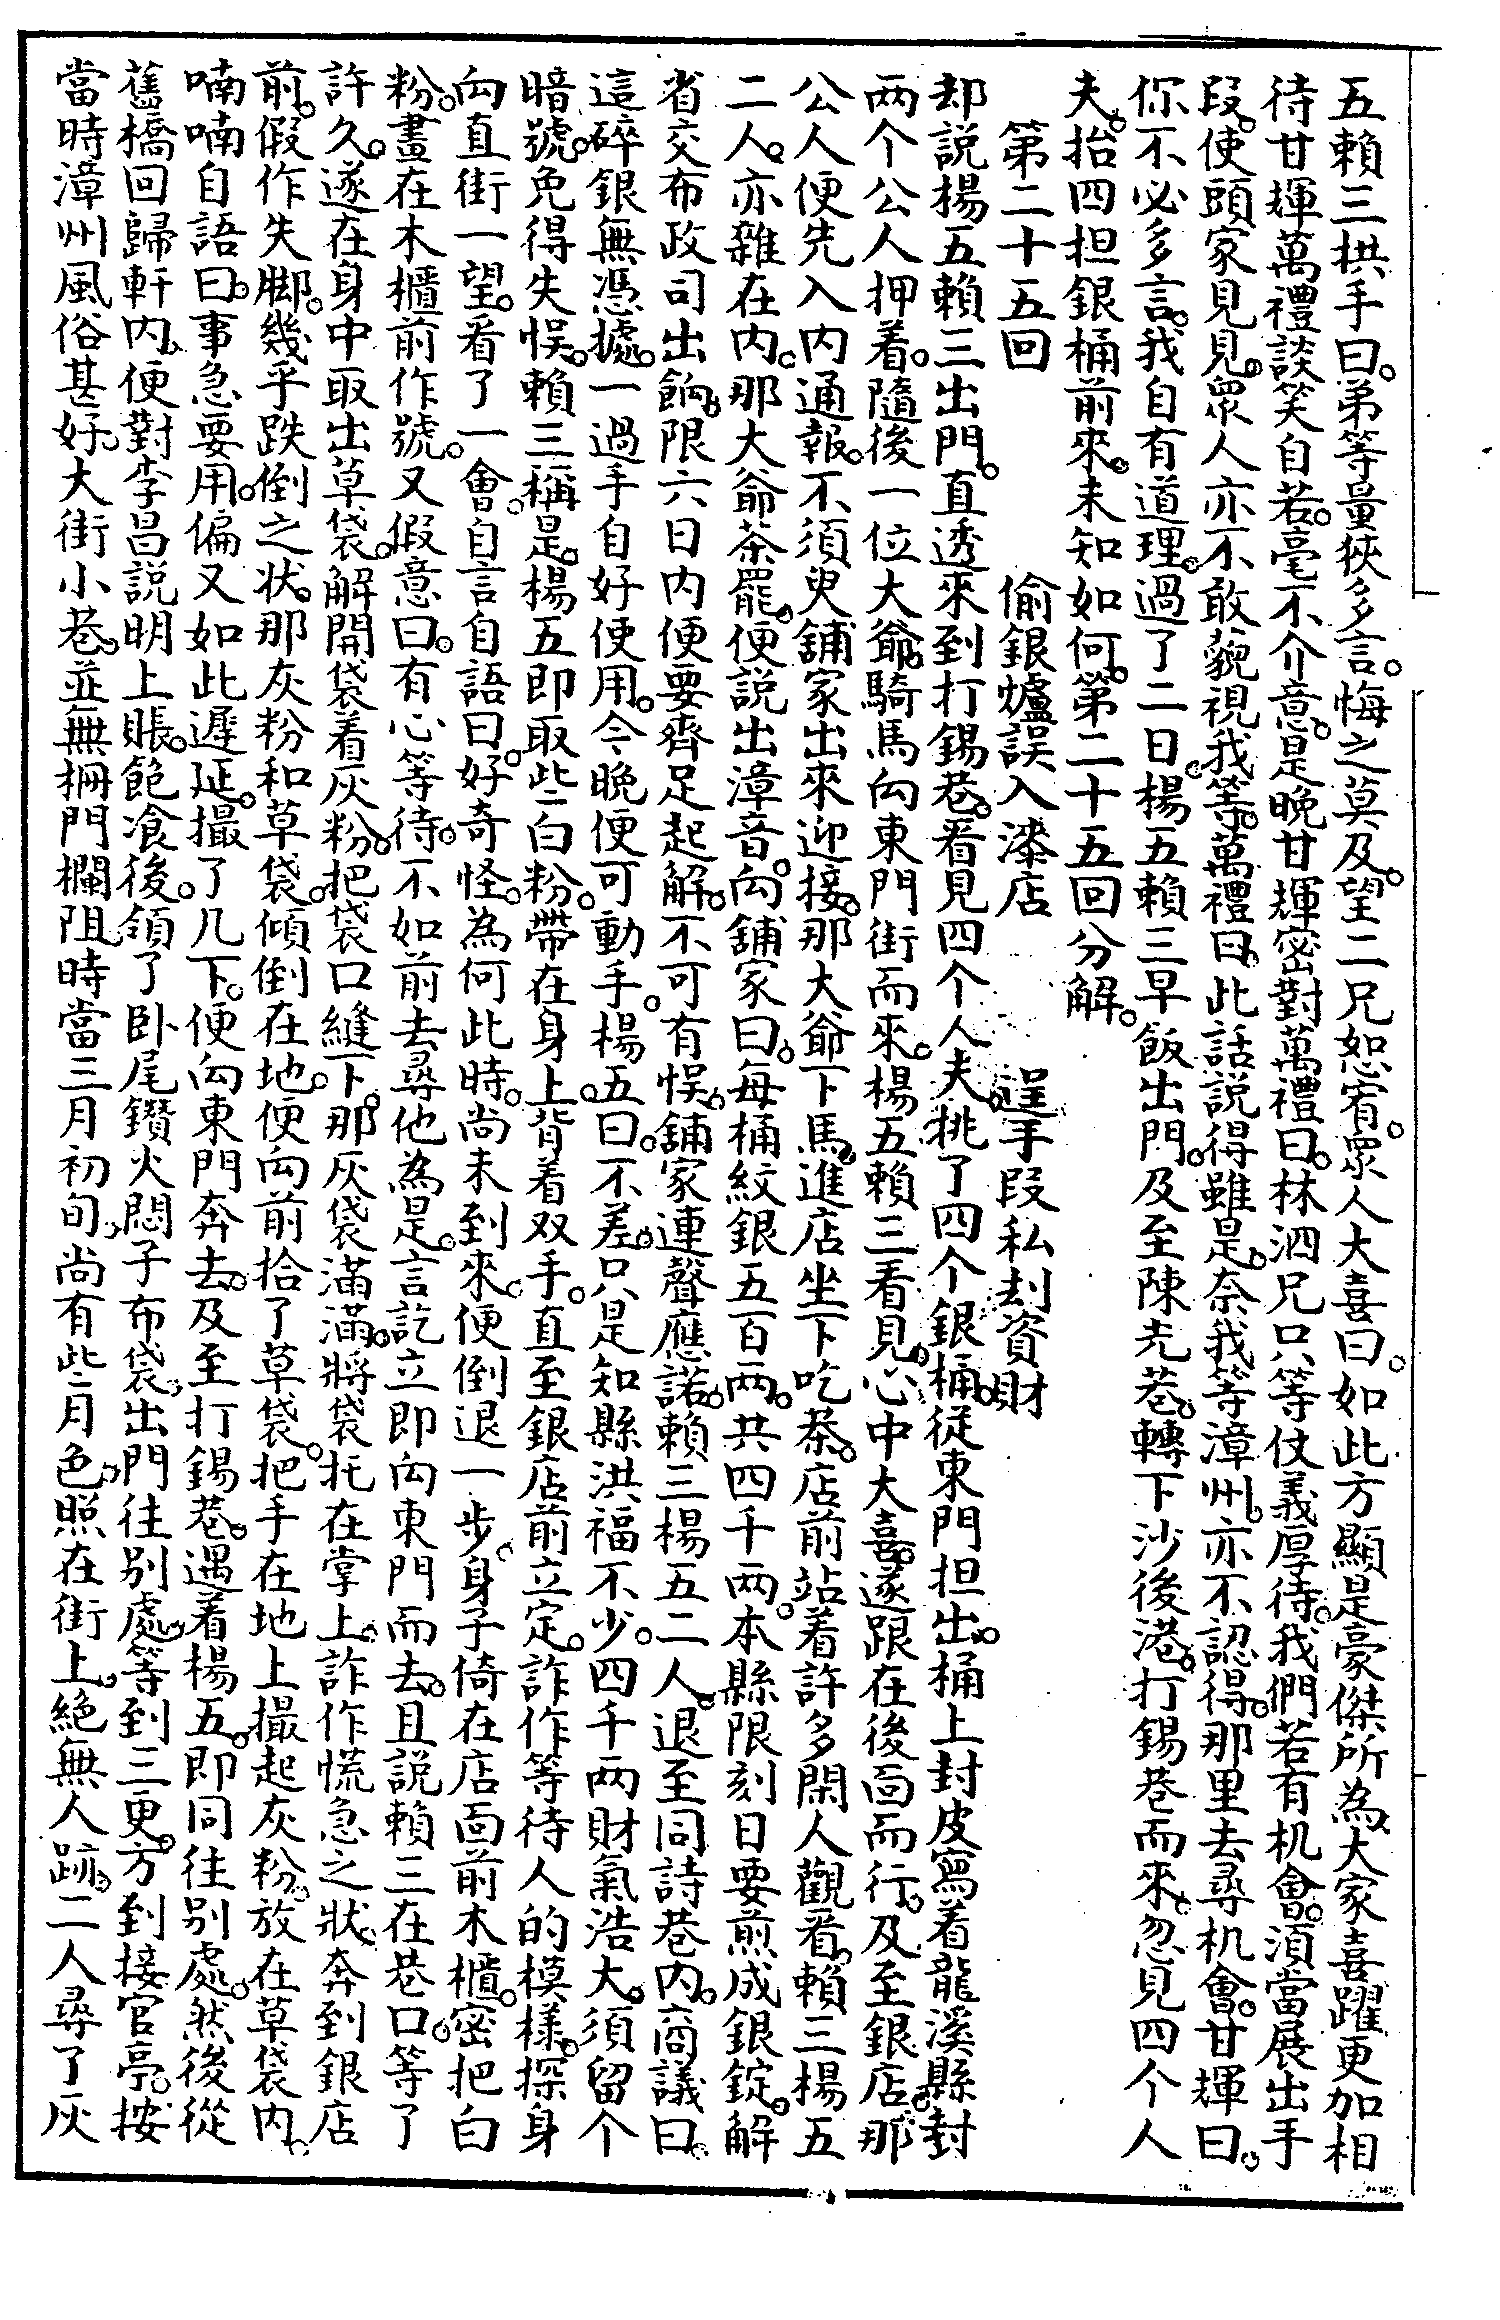 五賴三拱手曰。弟等量狹多言。悔之莫及。望二兄恕宥。衆人大喜曰。如此方顯是豪傑所為。大家喜躍更加相
待甘輝萬禮談笑自若。毫不介意。是晚甘輝密對萬禮曰。林泗兄只等仗義厚待。我們若有机會。須當展出手
段。使頭家見見。衆人亦不敢藐視我等。萬禮曰。此話說得雖是。奈我等漳州。亦不認得。那里去尋机會。甘輝曰。
你不必多言。我自有道理。過了二日。楊五賴三早飯出門。及至陳圥巷。轉下沙後港。打錫巷而來。忽見四个人
夫。抬四担銀桶前來。未知如何。第二十五回分解。
第二十五回　偷銀爐誤入漆店　逞手段私刦資財
却説楊五賴三出門。直透來到打錫巷。看見四个人夫。挑了四个銀桶。從東門担出。桶上封皮寫着龍溪縣封
两个公人押着。隨後一位大爺。騎馬向東門街而來。楊五賴三看見。心中大喜。遂跟在後面而行。及至銀店。那
公人便先入内通報。不須臾舖家出來迎接。那大爺下馬。進店坐下吃茶。店前站着許多閑人觀看。賴三楊五
二人。亦雜在内。那大爺茶罷。便説出漳音。向舖家曰。每桶紋銀五百两。共四千两。本縣限刻日要煎成銀錠。解
省交布政司出餉。限六日内便要齊足起解。不可有悞。舖家連聲應諾。賴三楊五二人。退至同詩巷内。商議曰。
這碎銀無憑據。一過手自好便用。今晩便可動手。楊五曰。不差。只是知縣洪福不少。四千两財氣浩大。須留个
暗號。免得失悞。賴三稱是。楊五即取些白粉。帶在身上。背着双手。直至銀店前立定。詐作等待人的模樣。探身
向直街一望。看了一會。自言自語曰。好奇怪。為何此時。尚未到來。便倒退一步。身子倚在店面前木櫃。密把白
粉。畫在木櫃前作號。又假意曰。有心等待。不如前去尋他為是。言訖立即向東門而去。且説賴三在巷口。等了
許久。遂在身中取出草袋。解開袋着灰粉。把袋口縫下。那灰袋滿滿。將袋扥在掌上。詐作慌急之狀。奔到銀店
前。假作失脚。幾乎跌倒之狀。那灰粉和草袋。傾倒在地。便向前拾了草袋。把手在地上撮起灰粉。放在草袋内。
喃喃自語曰。事急要用。偏又如此遲延。撮了几下。便向東門奔去。及至打錫巷。遇着楊五。即同往別處。然後從
舊橋回歸軒内。便對李昌説明上賬。飽飡後。領了卧尾鑽火悶子布袋。出門往别處。等到三更。方到接官亭。按
當時漳州風俗甚好。大街小巷。並無栅門欄阻。時當三月初旬。尚有些月色。照在街上。絶無人跡。二人尋了灰